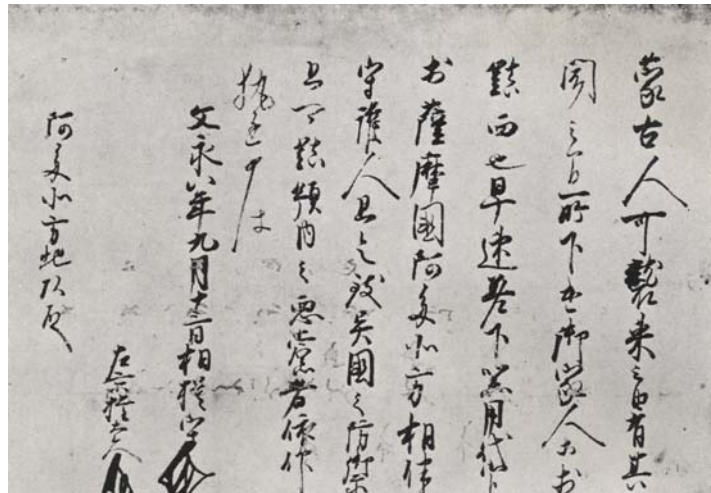 蒙古人可襲来之由有其
聞之間所下遣御家人等於
鎮西也早速差下器用代官
於薩摩國阿多北方相伴
守護人且令致異國之防禦
且可鎮領内之悪黨者依仰
執達如件
文永八年九月十三日相模守
左京權大夫
阿多北方地頭殿